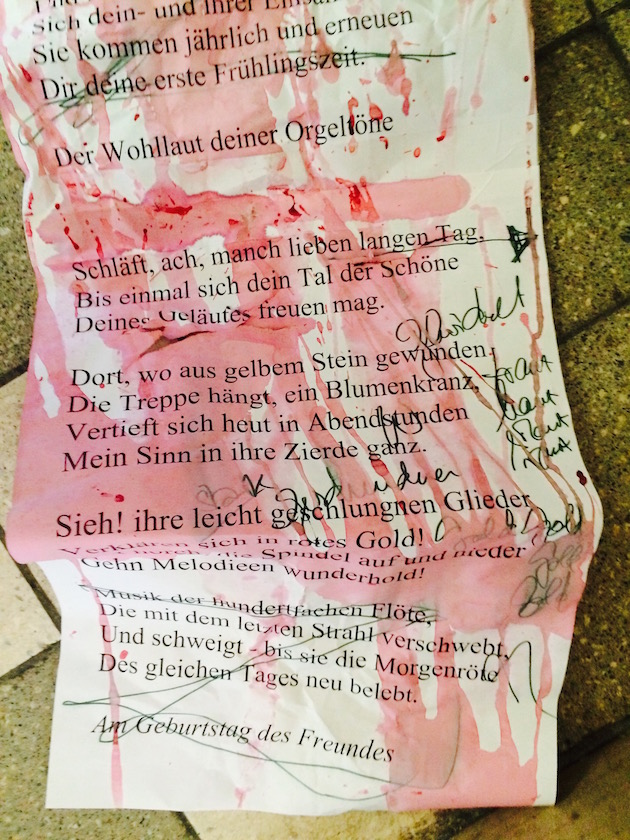 Sich dein- und ihrer
Sie kommen jährlich und erneuen
Dir deine erste Frühlingszeit.
Der Wohllaut deiner Orgeltöne
Schläft, ach, manch lieben langen Tag,
Bis einmal sich dein Tal der Schöne
Deines Geläutes freuen mag.
Dort, wo aus gelbem Stein gewunden,
Die Treppe hängt, ein Blumenkranz,
Vertieft sich heut in Abendstunden
Mein Sinn in ihre Zierde ganz.
Sieh! ihre leicht geschlungnen Glieder
Verklären sich in rotes Gold!
die Spindel auf und nieder
Gehn Melodieen wunderhold!
Musik der hundertfachen Flöte,
Die mit dem letzten Strahl verschwebt,
Und schweigt - bis sie die Morgenröte
Des gleichen Tages neu belebt.
Am Geburtstag des Freundes